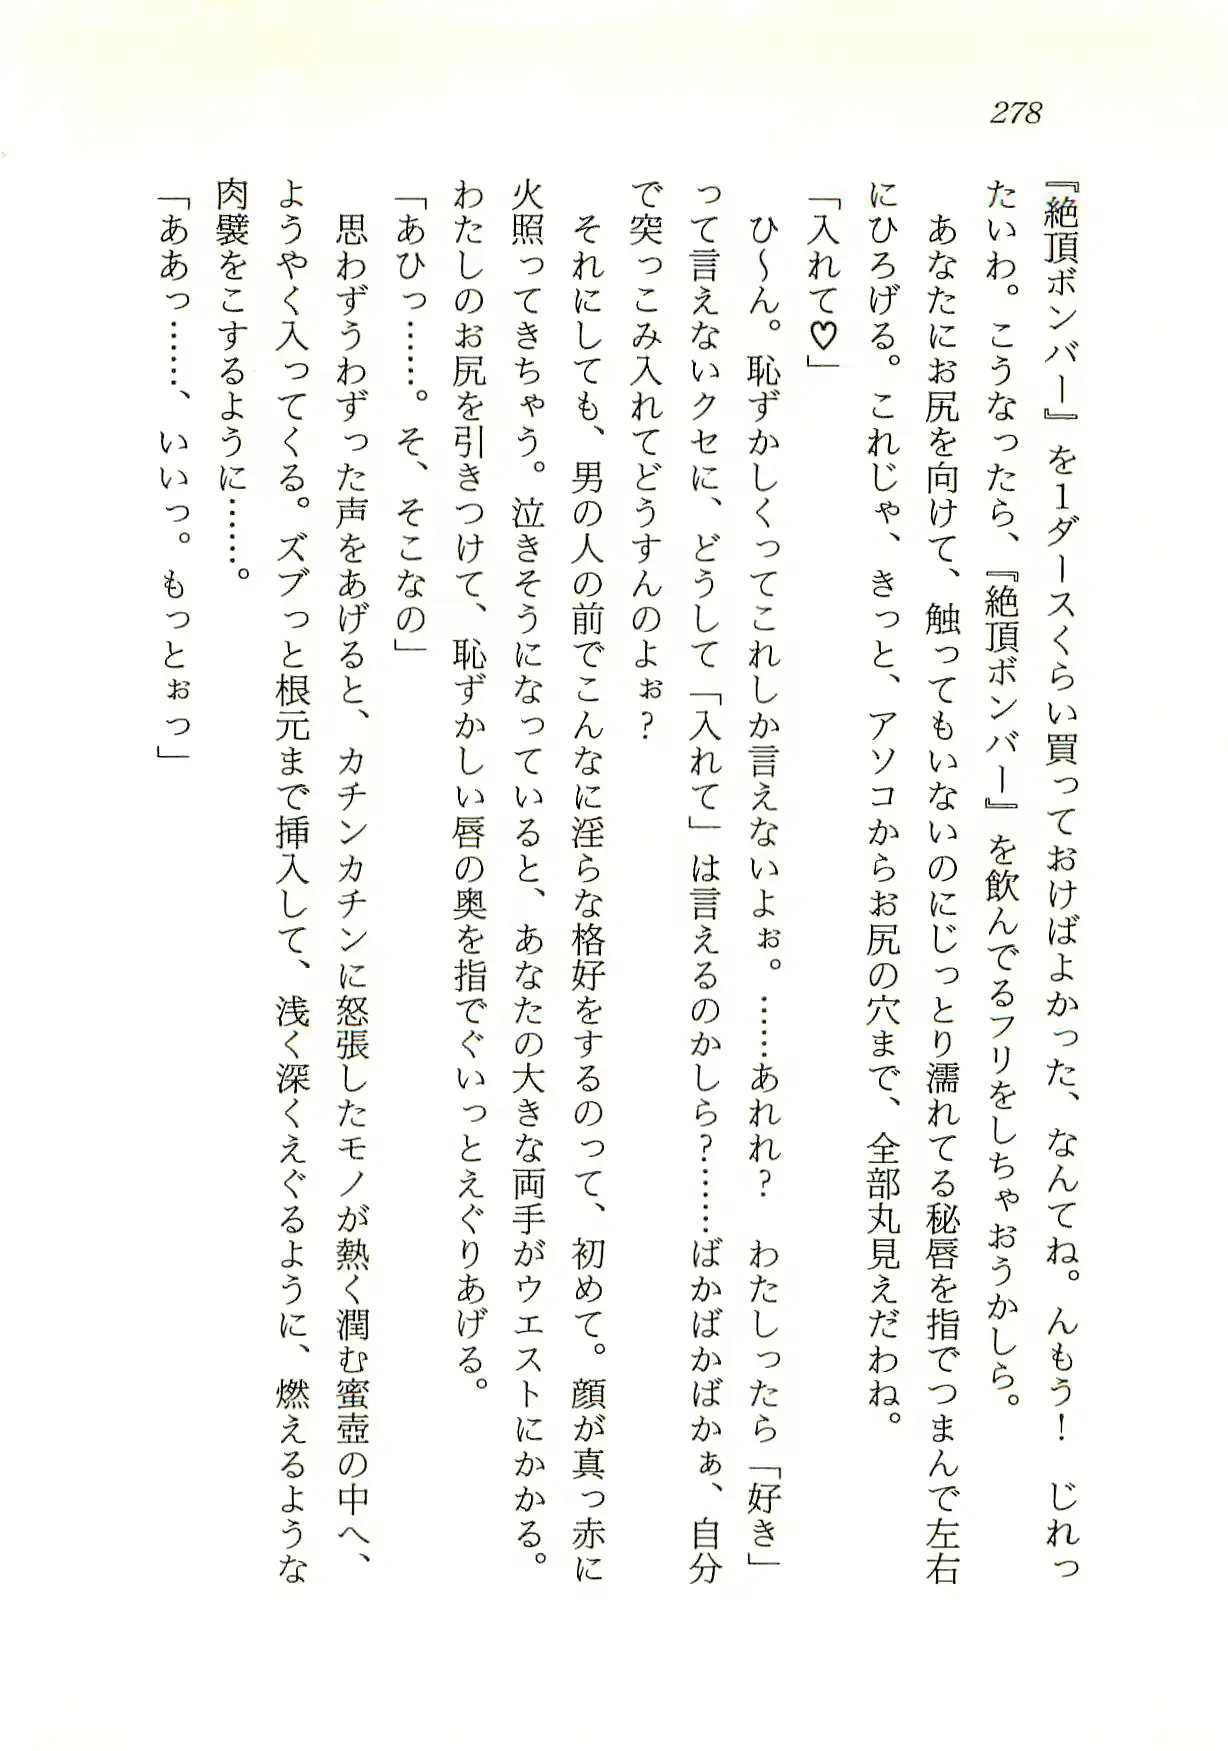 278
『絶頂ボンバー』を1ダースくらい買っておけばよかった、なんてね。んもう！　じれっ
たいわ。こうなったら、『絶頂ボンバー』を飲んでるフリをしちゃおうかしら。
　あなたにお尻を向けて、触ってもいないのにじっとり濡れてる秘唇を指でつまんで左右
にひろげる。これじゃ、きっと、アソコからお尻の穴まで、全部丸見えだわね。
「入れて♡」
　ひ〜ん。恥ずかしくってこれしか言えないよぉ。……あれれ？　わたしったら「好き」
って言えないクセに、どうして「入れて」は言えるのかしら？……ばかばかばかぁ、自分
で突っこみ入れてどうすんのよぉ？
　それにしても、男の人の前でこんなに淫らな格好をするのって、初めて。顔が真っ赤に
火照ってきちゃう。泣きそうになっていると、あなたの大きな両手がウエストにかかる。
わたしのお尻を引きつけて、恥ずかしい唇の奥を指でぐいっとえぐりあげる。
「あひっ……。そ、そこなの」
　思わずうわずった声をあげると、カチンカチンに怒張したモノが熱く潤む蜜壺の中へ、
ようやく入ってくる。ズブっと根元まで挿入して、浅く深くえぐるように、燃えるような
肉襞をこするように……。
「ああっ……、いいっ。もっとぉっ」